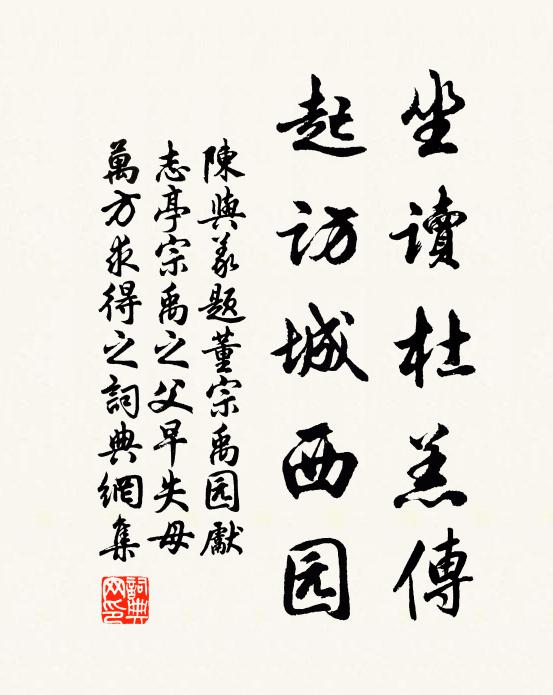 坐讀杜羔傳
起訪城西园
陳與義題董宗禹园獻
志亭宗禹之父早失母
萬方求得之詞典網集
詞典網印